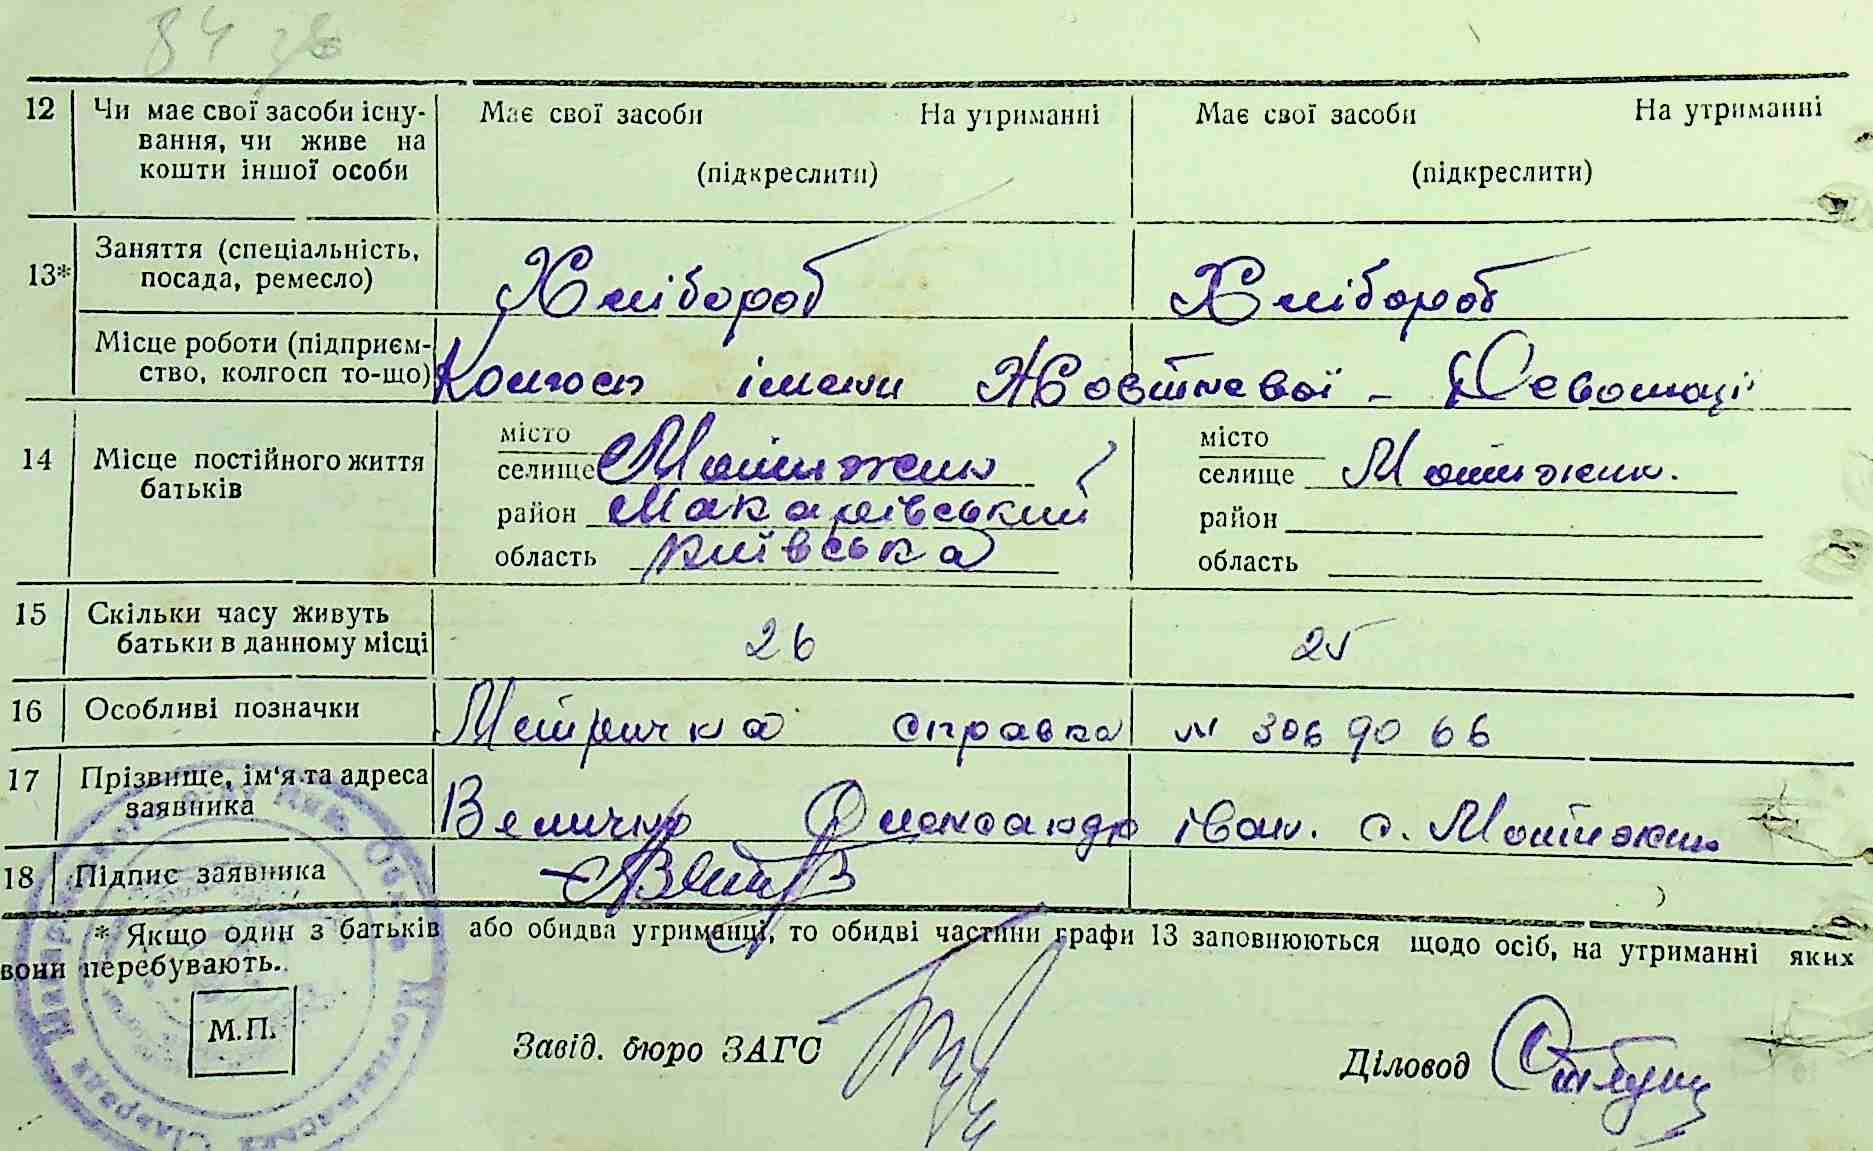 84 зв
12 Чи має свої засоби існу- Має свої засоби На утриманні Має свої засоби На утриманні
вання, чи живе на
кошти іншої особи (підкреслити) (підкреслити)
13* Заняття (спеціальність,
посада, ремесло) Хлібороб Хлібороб
Місце роботи (підприєм-
ство, колгосп то-що) Колгосп імени Жовтневої - Революції
14 Місце постійного життя
батьків
місто місто
селище Мотижин селище Мотижин.
район Макарівський район
область київська область
15 Скільки часу живуть
батьки в данному місці 26 25
16 Особливі позначки Метричка справка № 3069066
17 Прізвище, ім'я та адреса
заявника Величко Олександр іван. с. Мотижин
18 Підпис заявника
* Якщо один з батьків або обидва утриманці, то обидві частини графи 13 заповнюються щодо осіб, на утриманні яких
вони перебувають.
М.П.
Завід. бюро ЗАГС Діловод